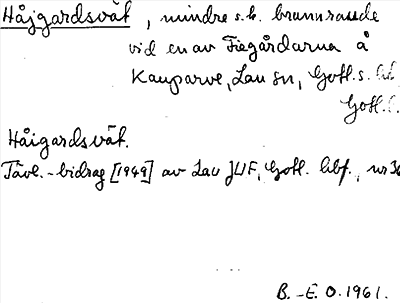 Håjgardsvät, mindre s.k. brunnrassde
vid en av Fiegårdarna å
Kauparve, Lau sn, Gotl. s. hd
Gotl. l.
Håigardsvät.
Tävl.-bidrag [1949] av Lau JUF, Gotl. hbf., nr
B.-E. O. 1961.